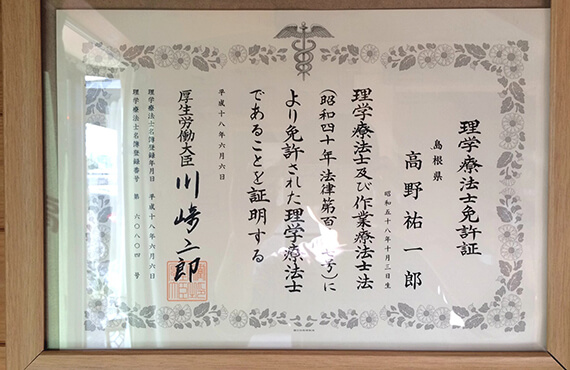 理学療法士免許証
島根県
高野祐一郎
昭和五十八年十月三日生
理学療法士及び作業療法士法
(昭和四十年法律第百 七号)に
より免許された理学療法士
であることを証明する
平成十八年六月六日
厚生労働大臣 川崎二郎
理学療法士名簿登録年月日 平成十八年六月六日
理学療法士名簿登録番号 第 六〇八〇四 号